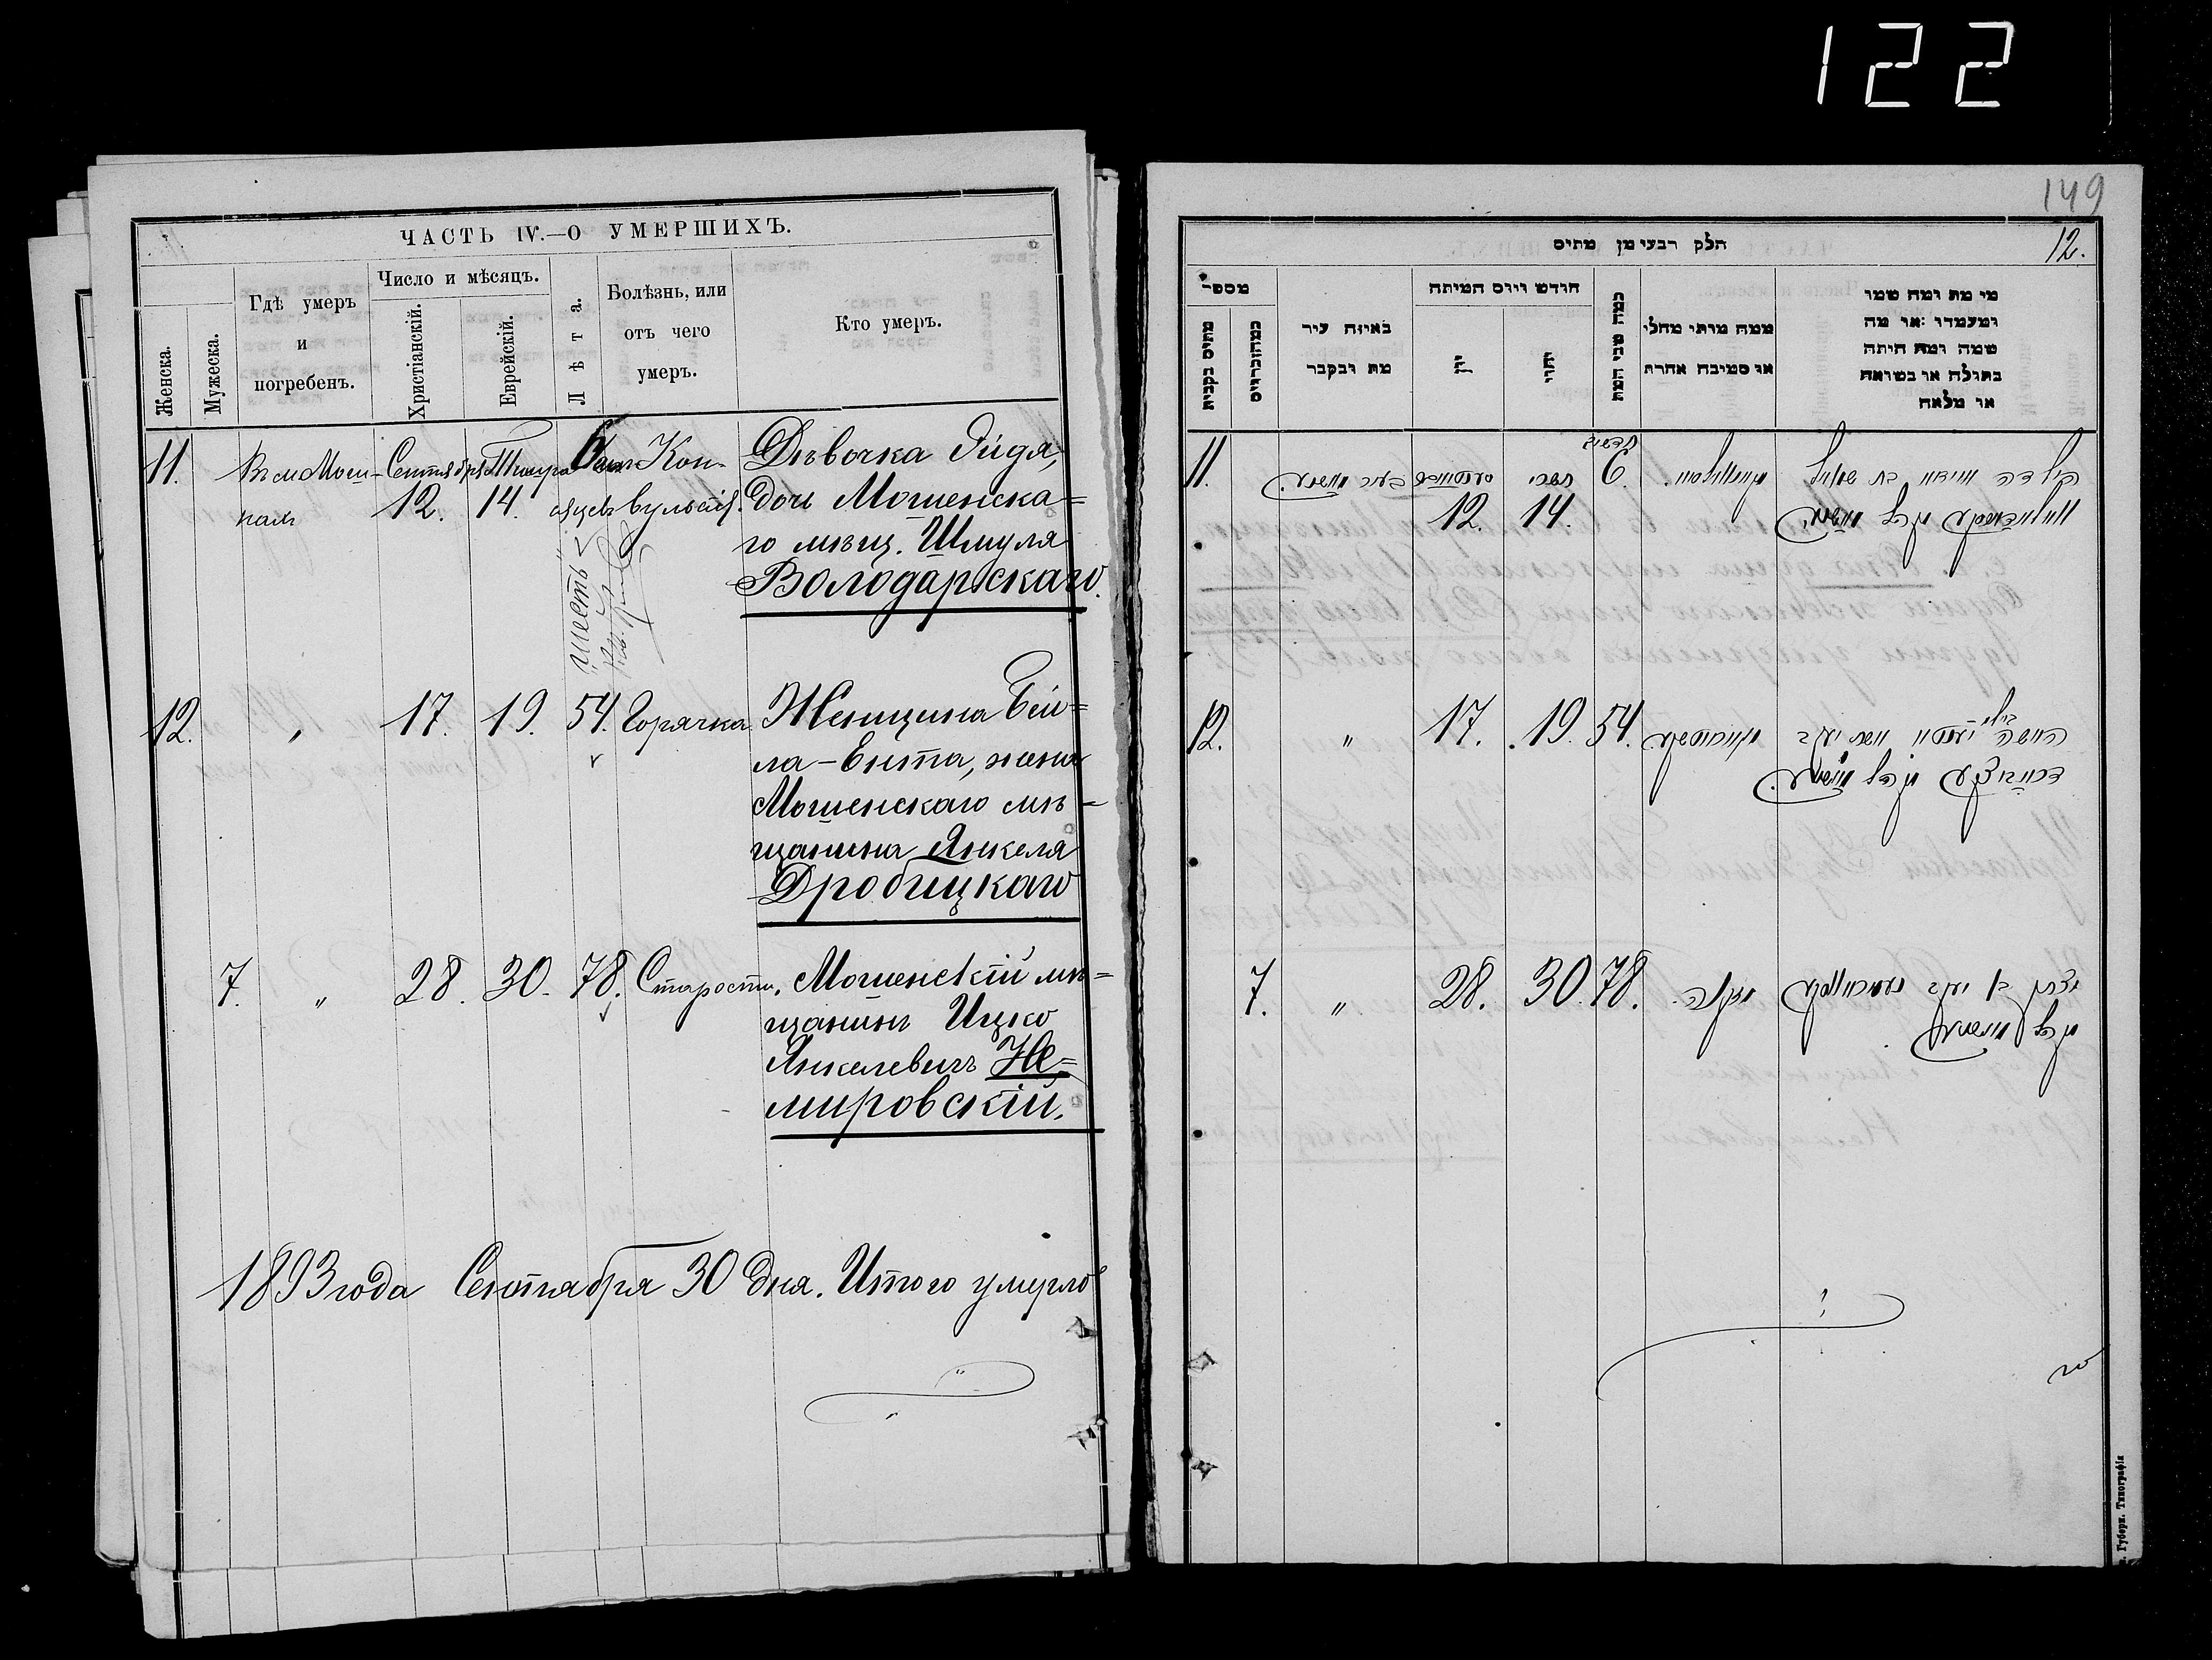 122
ЧАСТЬ IV.—О УМЕРШИХЪ.
Женска.
Мужеска.
Гдѣ умеръ
и
погребенъ.
Число и мѣсяцъ.
Христіанскій.
Еврейскій.
Лѣта.
Болѣзнь, или
отъ чего
умеръ.
Кто умеръ.
11.
Въ м Мош-
нахъ
Сентября
12.
Тишра
14.
6
сяцевъ
"шесть"
Кон-
вульсій.
Дѣвочка Эйдя,
дочь Мошенска=
го мѣщ. Шмуля
Володарскаго.
12.
"
17.
19.
54.
Горячка
Женщина Бей=
ла-Ента, жена
Мошенскаго мѣ-
щанина Янкеля
Дробицкаго
7.
"
28.
30.
78.
Старость.
Мошенскій мѣ=
щанинъ Ицко
Янкелевичъ Не=
мировскій.
1893 года Сентября 30 дня. Итого умерло
149
12.
חלק רבעי מן מתים
מספר
מתים בקבות
באיזה עיר
מת ונקבר
חודש ויום המיתה
יהודי
כמה שני המת
ממה מותי מחלי
או מסיבה אחרת
מי מת ומה שמו
ומעמדו או מה
שמה ומה היתה
בתולה או נשואה
או מלאה
11.
12.
תשרי
14.
6.
חדשים
הילדה איידיא בת שמואל
12.
"
17.
19.
54.
האשה יענטא אשת יעקב
ביילא
7.
"
28.
30.
78.
זקנה
יצחק בן יעקב
Губерн. Типографія